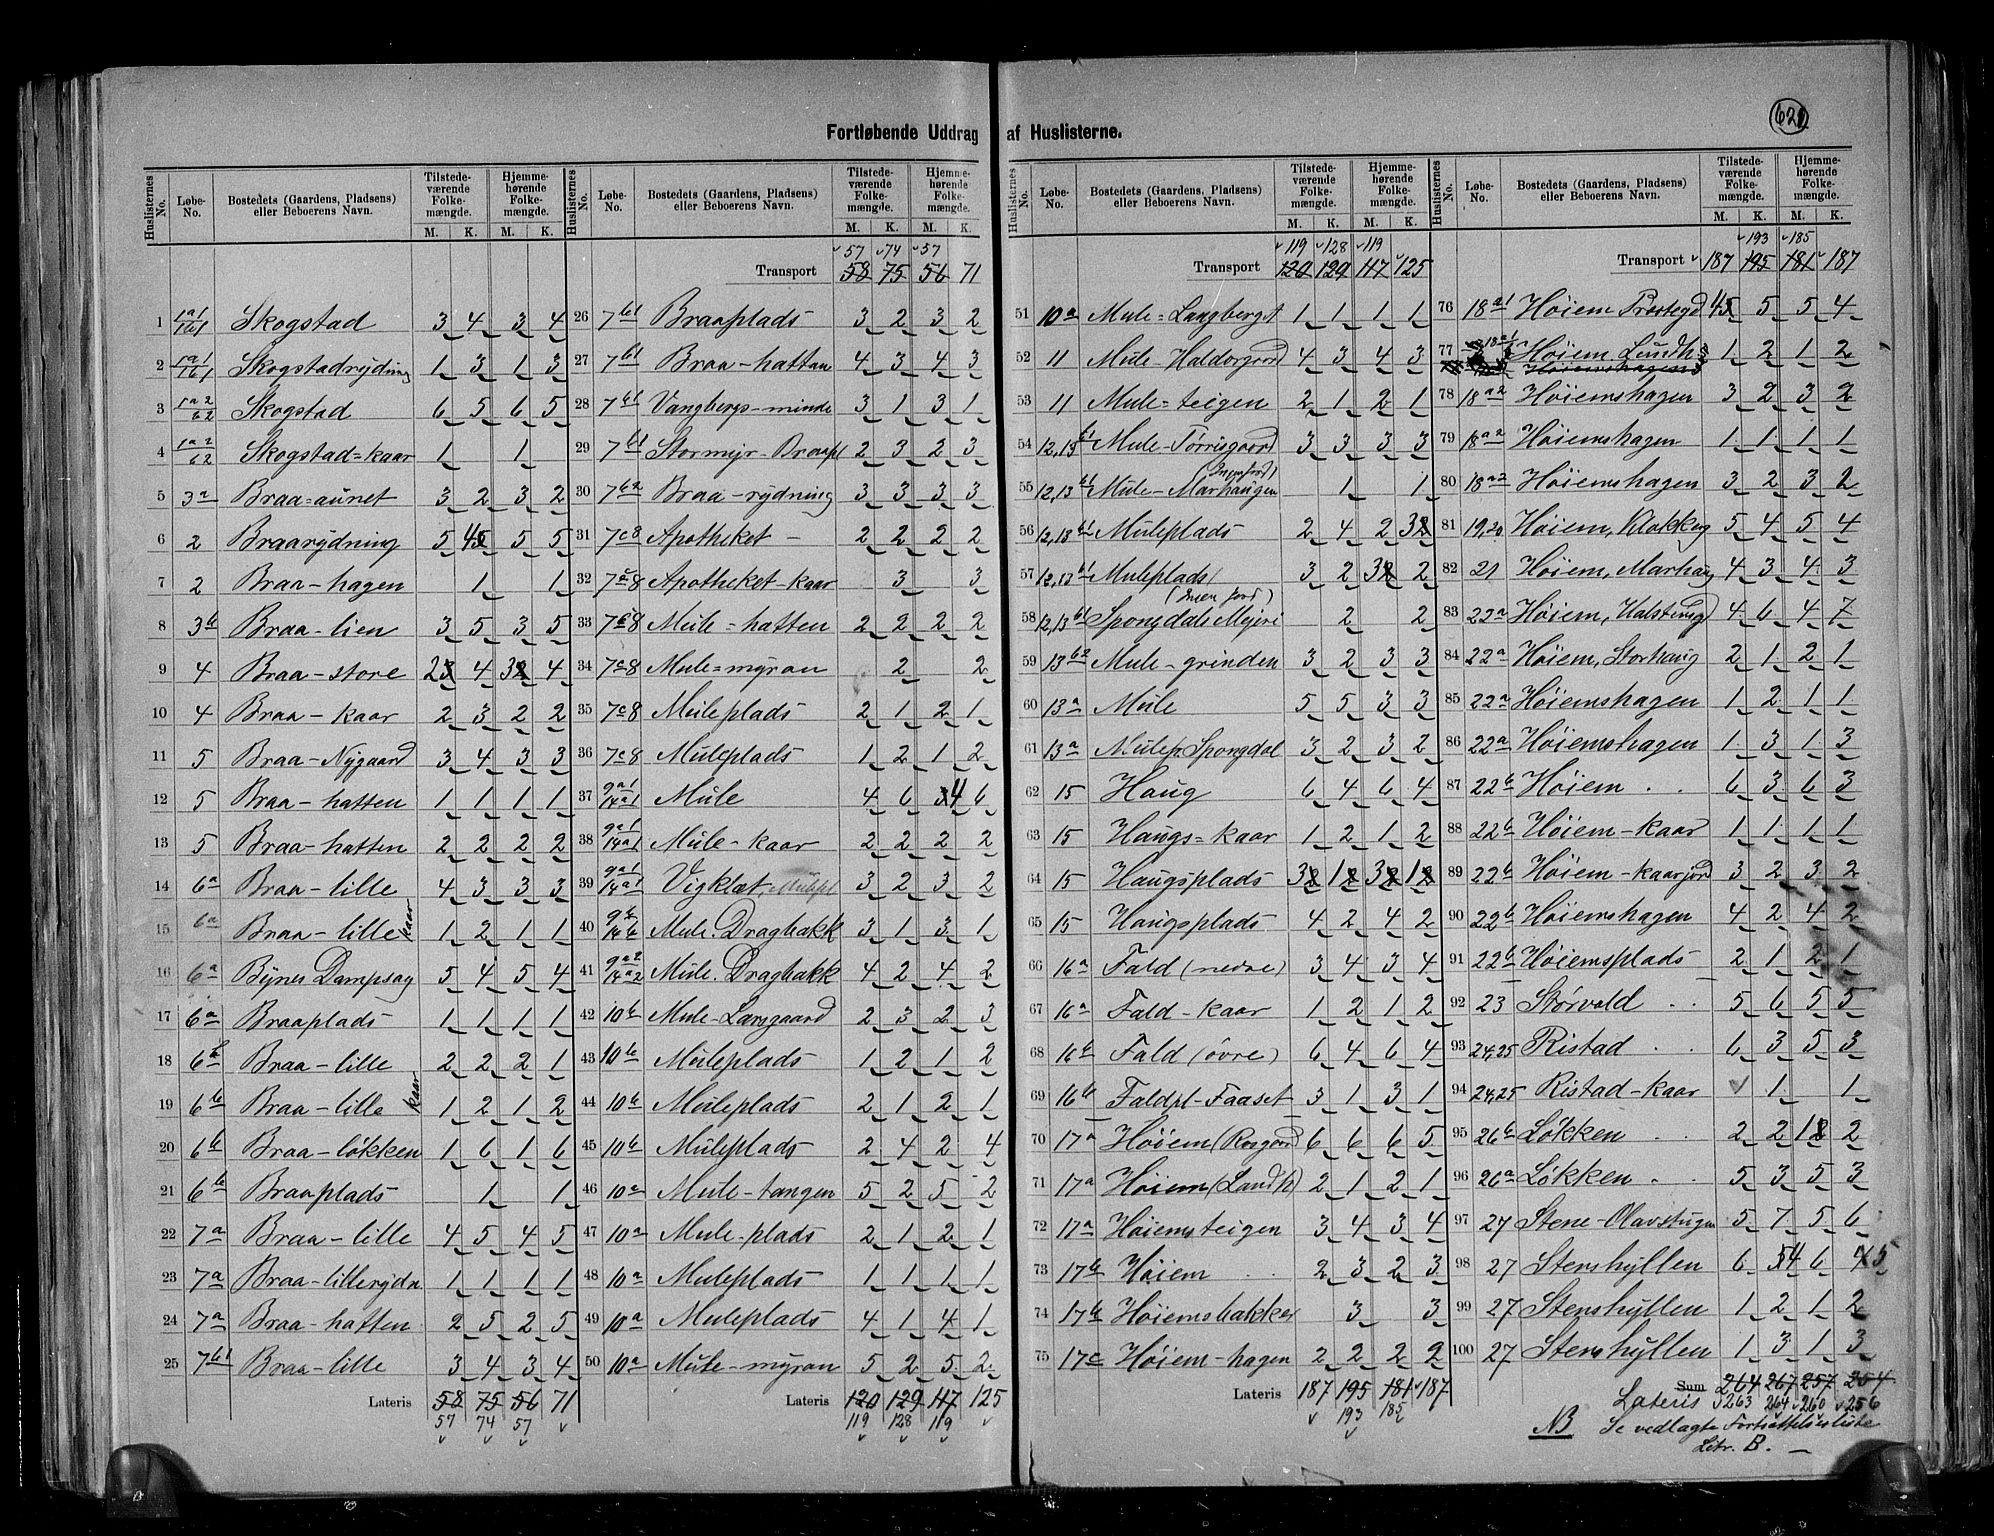 620
Fortløbende Uddrag af Huslisterne.
Huslisternes No. | Løbe-No. | Bostedets (Gaardens, Pladsens) eller Beboerens Navn. | Tilstedeværende Folkemængde. M. K. | Hjemmehørende Folkemængde. M. K.
1 1a1/1b1 Skogstad 3 4 3 4
2 1a1/1b1 Skogstadrydning 1 3 1 3
3 1a2/b2 Skogstad 6 5 6 5
4 1a2/b2 Skogstad=kaar 1 1
5 3a Braa=aunet 3 2 3 2
6 2 Braarydning 5 4 5 5
7 2 Braa-hagen 1 1
8 3b Braa-lien 3 5 3 5
9 4 Braa-store 2 4 3 4
10 4 Braa-kaar 2 3 2 2
11 5 Braa-Nygaard 3 4 3 3
12 5 Braa-hatten 1 1 1 1
13 5 Braa-hatten 2 2 2 2
14 6a Braa-lille 4 3 3 3
15 6a Braa-lille kaar 1 2 1 1
16 6a Bynes Dampsag 5 4 5 4
17 6a Braaplads 1 1 1 1
18 6b Braa-lille 2 2 2 1
19 6b Braa-lille kaar 1 2 1 2
20 6b Braa-løkken 1 6 1 6
21 6b Braaplads 1 1
22 7a Braa-lille 4 5 4 5
23 7a Braa-lillerydn 1 1 1 1
24 7a Braa-hatten 2 5 2 5
25 7b1 Braa-lille 3 4 3 4
Lateris 58 75 56 71
57 74 57
57 74 57
Transport 58 75 56 71
26 7b1 Braaplads 3 2 3 2
27 7b1 Braa-hattan 4 3 4 3
28 7b1 Vangbergs-minde 3 1 3 1
29 7b1 Stormyr-Braapl 2 3 2 3
30 7b2 Braa-rydning 3 3 3 3
31 7c8 Apotheket - 2 2 2 2
32 7c8 Apotheket-kaar 3 3
33 7c8 Mule=hatten 2 2 2 2
34 7c8 Mule=myran 2 2
35 7c8 Muleplads 2 1 2 1
36 7c8 Muleplads 1 2 1 2
37 9a1/14a1 Mule 4 6 4 6
38 9a1/14a1 Mule-kaar 2 2 2 2
39 9a1/14a1 Vigklæt, Mulepl 3 2 3 2
40 9b/14b Mule. Dragbakk 3 1 3 1
41 9a2/14a2 Mule. Dragbakk 4 2 4 2
42 10b Mule-Larsgaard 2 3 2 3
43 10b Muleplads 1 2 1 2
44 10b Muleplads 2 1 2 1
45 10b Muleplads 2 4 2 4
46 10a Mule-tangen 5 2 5 2
47 10a Mule-plads 2 1 2 1
48 10a Muleplads 1 1 1 1
49 10a Muleplads 4 1 4 1
50 10a Mule-myran 5 2 5 2
Lateris 120 129 117 125
119 128 119
119 128 119
Transport 120 129 117 125
51 10a Mule=Langberget 1 1 1 1
52 11 Mule-Haldorgjord 4 3 4 3
53 11 Mule=teigen 2 1 2 1
54 12,13b1 Mule-Tørrisgaard 3 3 3 3
55 12,13b1 Mule-Marhaugen (Uden jord) 1 1
56 12,13b1 Muleplads 2 4 2 3
57 12,13b1 Muleplads (Uden jord) 3 2 3 2
58 12,13b1 Spongdals Mejeri 2 2
59 13b2 Mule-grinden 3 2 3 3
60 13a Mule 5 5 3 3
61 13a Mulep. Spongdal 3 2 3 2
62 15 Haug 6 4 6 4
63 15 Haugs=kaar 1 2 1 2
64 15 Haugsplads 3 1 3 1
65 15 Haugsplads 4 2 4 2
66 16a Fald (nedre) 3 4 3 4
67 16a Fald-kaar 1 2 1 2
68 16b Fald (øvre) 6 4 6 4
69 16b Faldpl-Faaset 3 1 3 1
70 17a Høiem (Rosgjord 6 6 6 5
71 17a Høiem (Lundh) 2 1 2 1
72 17a Høiemsteigen 3 4 3 4
73 17b Høiem 2 3 2 3
74 17b Høiemsbakken 3 3
75 17c Høiem-hagen 2 2 2 2
Lateris 187 195 181 187
193 185
193 185
Transport 187 195 181 187
76 18a1 Høiem Prestegd 4 5 5 4
77 18a1 Høiem, Lundh. 1 2 1 2
Høiemshagen
78 18a2 Høiemshagen 3 2 3 2
79 18a2 Høiemshagen 1 1 1 1
80 18a2 Høiemshagen 3 2 3 2
81 19,20 Høiem, Klokkerg 5 4 5 4
82 21 Høiem, Marhaug 4 3 4 3
83 22a Høiem, Halstengd 4 6 4 7
84 22a Høiem, Storhaug 2 1 2 1
85 22a Høiemshagen 1 2 1 1
86 22a Høiemshagen 1 3 1 3
87 22b Høiem 6 3 6 3
88 22b Høiem-kaar 1 1 1 1
89 22b Høiem-kaarjord 3 2 3 2
90 22b Høiemshagen 4 2 4 2
91 22b Høiemsplads 2 1 2 1
92 23 Størvold 5 6 5 5
93 24,25 Ristad 6 3 5 3
94 24,25 Ristad-kaar 1 1
95 26b Løkken 2 2 1 2
96 26a Løkken 5 3 5 3
97 27 Stene-Olavstugen 5 7 5 6
98 27 Stenshyllen 6 4 6 5
99 27 Stenshyllen 1 2 1 2
100 27 Stenshyllen 1 3 1 3
Sum 264 267 257 254
Lateris 263 264 260 256
NB Se vedlagte Fortsættelsesliste
Litr. B. -